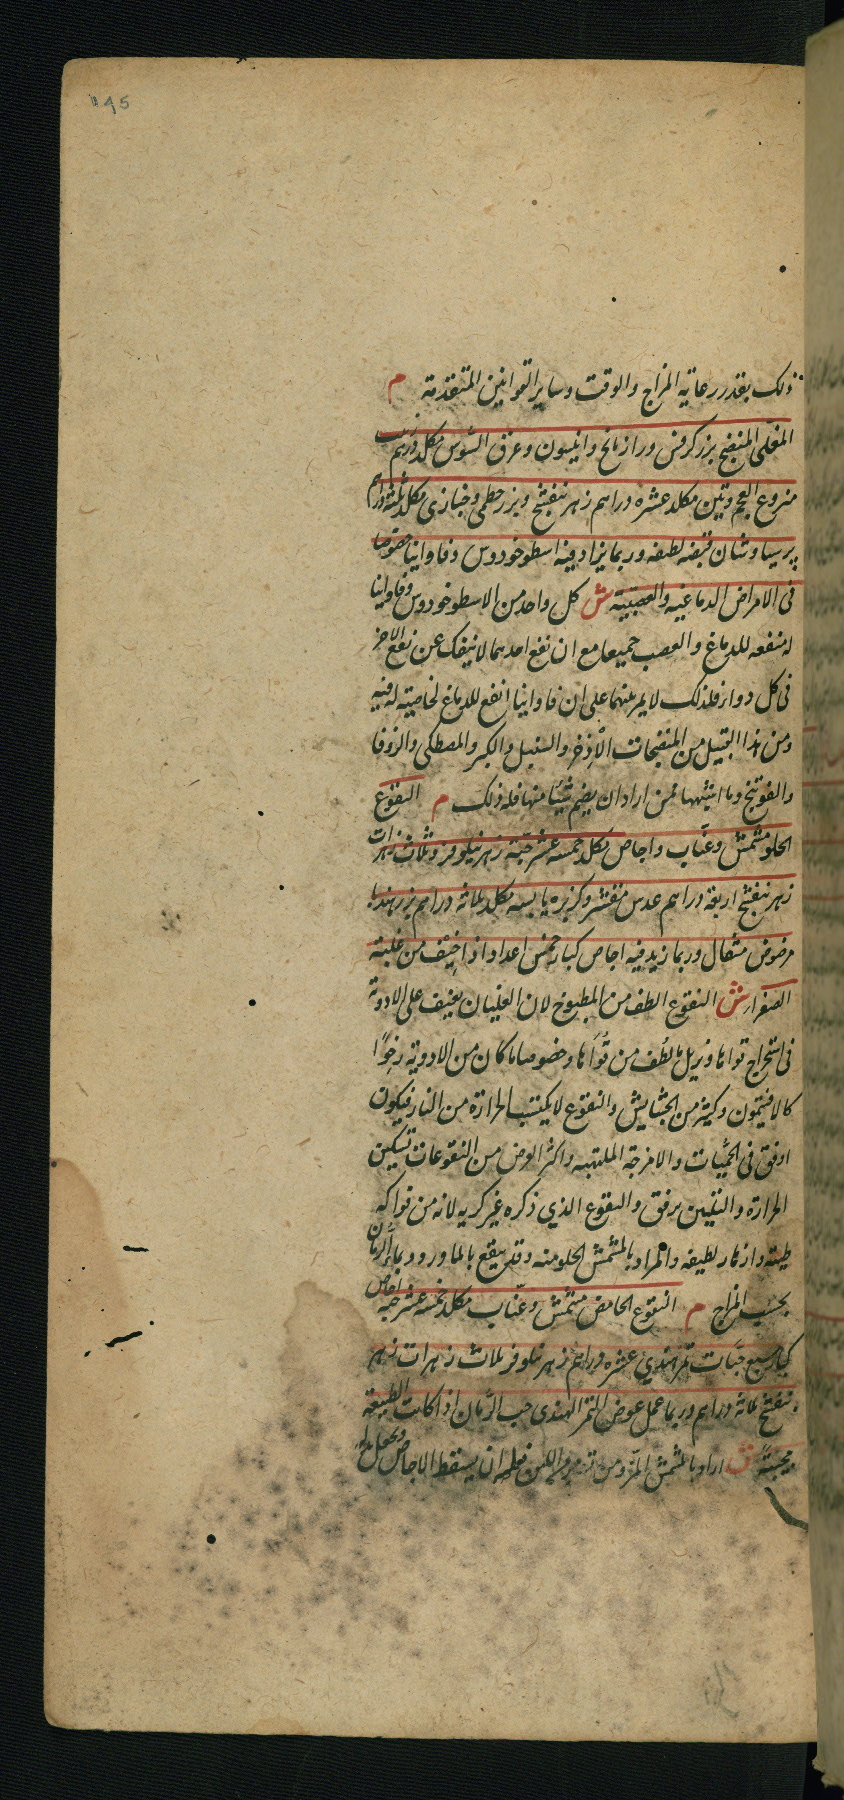 ذلك بقدر رعاية المزاج والوقت وساير القوانين المتقدمة م
المغلى المنضج بزر كرفس ورازيانج وانيسون وعرق السوس مكلد درهم زبيب
منزوع العجم وتين مكلد عشرة دراهم زهر بنفشج وبزر خطمى وخبازى مكلد ثلثة دراهم
برسياوشان قبضة لطيفة وربما يزاد فيه اسطوخودوس وفاوانيا خصوصا
فى الامراض الدماغية والعصبية ش كل واحد من الاسطوخودوس وفاوانيا
له منفعه للدماغ والعصب جميعا مع ان نفع احدهما لا ينفك عن نفع الاخر
فى كل دواء فلذلك لا يمر بينهما على ان فاوانيا انفع للدماغ لخاصية له فيه
ومن هذا القبيل من المنضجات الاذخر والسنبل والكبر والمصطكى والزوفا
والفوتنج وما اشبهها فمن اراد ان يضم شيئا منها فله ذلك م النقوع
الحلو مشمش وعناب واجاص مكلد خمسة عشر حبة زهر نيلوفر وثلاث زهرات
زهر بنفشج اربعة دراهم عدس مقشر وكزبرة يابسه مكلد ثلاثة دراهم بزر هندبا
مرضوض مثقال وربما زيد فيه اجاص كبار خمس اعداد اذا خيف من غلبة
الصفراء ش النقوع الطف من المطبوخ لان الغليان يعنف على الادوية
فى استخراج قواها ويزيل ما لطف من قواها وخصوصا ما كان من الادوية رخوا
كالافتيمون وكثير من الحشايش والنقوع لا يكتسب الحرارة من النار فيكون
اوفق فى الحميات والامزجة الملتهبه واكثر الغرض من النقوعات تسكين
الحرارة والتليين برفق والنقوع الذي ذكره غير كريه لانه من فواكه
طيبة وازهار لطيفه والمراد بالمشمش الحلو منه وقد ينقع بالماورد وبماء الرمان
بحسب المزاج م النقوع الحامض مشمش وعناب مكلد خمسة عشر حبه اجاص
كبار سبع حبات تمر هندي عشرة دراهم زهر نيلوفر ثلاث زهرات زهر
بنفشج ثلاثة دراهم وربما عمل عوض التمر الهندى حب الرمان اذا كانت الطبيعة
مجيبة ش اراد بالمشمش المز ومن فله ان يسقط الاجاص ويجعل